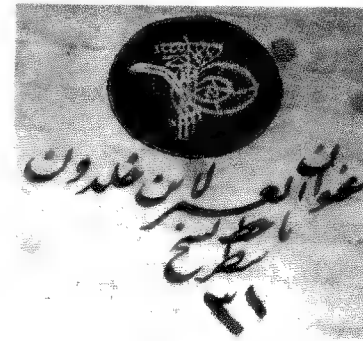 عنوان العبر لابن خلدون
باخط نسخ
سطر
٣١